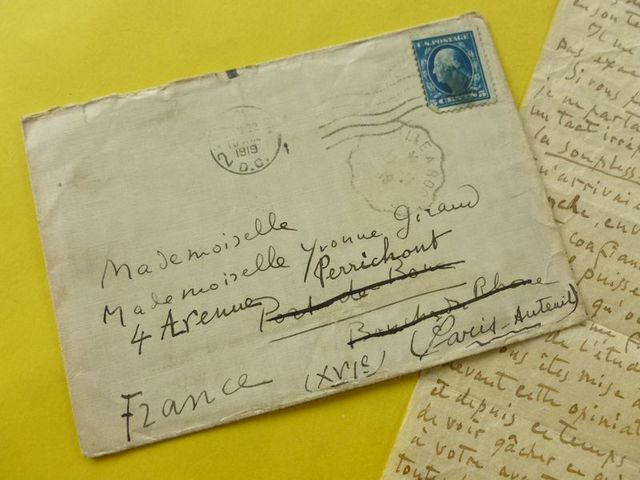 U.S. POSTAGE
5 CENTS 5
1919
D.C.
2
1
Mademoiselle
Mademoiselle Yvonne Giraud
4 Avenue Perrichont
Port-de-Bouc
Bouches du Rhone
(XVIe) (Paris-Auteuil)
France
en son te
Il ne
pas exa
Si vous p
je me parta
un tact irré
la souplesse
qu'arrivai
che, env
confian
puisse
qu'o
de l'étud
ous êtes mise a
devant cette opiniat
et depuis ce temps
de voir gâcher ce qu
à votre ave
toute